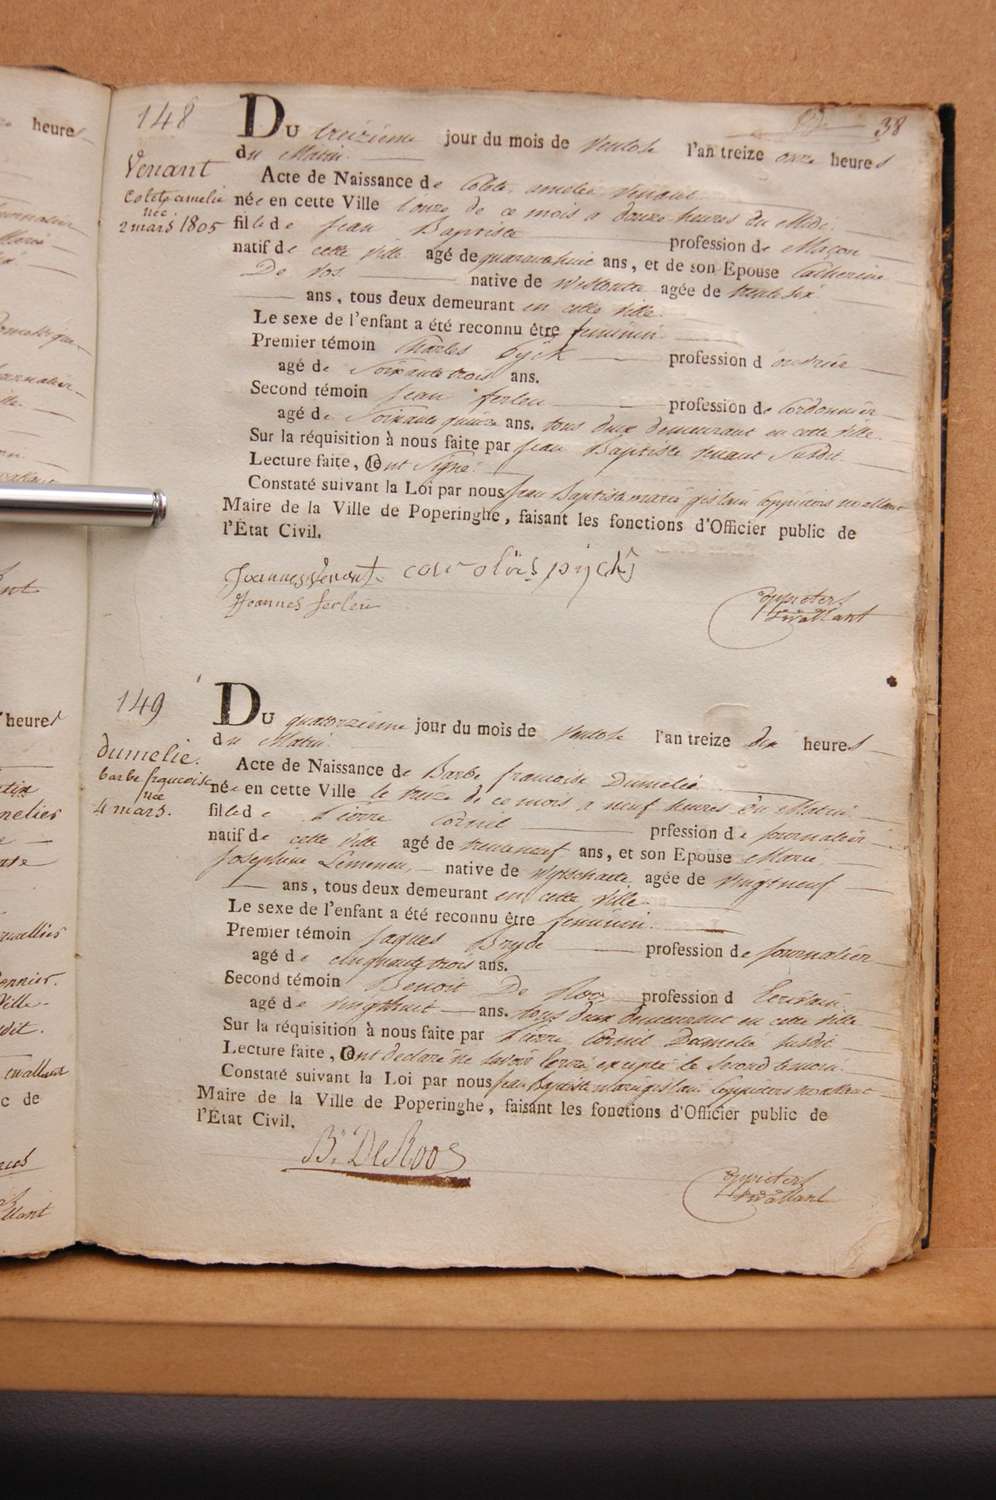 38
148
Venant
Colete amelie
née
2 mars 1805
Du treizieme jour du mois de Ventose l'an treize onze heures
du Matin
Acte de Naissance de Colete amelie Venant
née en cette Ville l'onze de ce mois a douze heures du Midi
fille de Jean Baptiste profession de Maçon
natif de cette Ville agé de quarantehuit ans, et de son Epouse Catherine
De Vos native de agée de trentesix
ans, tous deux demeurant en cette Ville
Le sexe de l'enfant a été reconnu être feminin
Premier témoin Charles Pyck profession d'ouvrier
agé de Soixante trois ans.
Second témoin Jean ferleu profession de Cordonnier
agé de Soixante quinze ans. tous deux demeurant en cette Ville
Sur la réquisition à nous faite par Jean Baptiste Venant Susdit
Lecture faite, ont Signé.
Constaté suivant la Loi par nous Jean Baptiste marie gislain Coppieters wallant
Maire de la Ville de Poperinghe, faisant les fonctions d'Officier public de
l'État Civil.
Joannes Venant carolus pyck
Joannes ferleu
Coppieters
wallant
149
dumelie.
barbe françoise
née
4 mars.
Du quatorzieme jour du mois de Ventose l'an treize dix heures
du Matin
Acte de Naissance de Barbe francoise Dumelié
née en cette Ville le treize de ce mois a neuf heures du Matin
fille de Pierre Cornil prfession de Journalier
natif de cette Ville agé de trenteneuf ans, et son Epouse Marie
Josephine native de Wytschaete agée de Vingtneuf
ans, tous deux demeurant en cette Ville
Le sexe de l'enfant a été reconnu être feminin
Premier témoin Jaques Bryde profession de Journalier
agé de Cinquante trois ans.
Second témoin Benoit De Roo profession d Ecrivain
agé de Vingthuit ans. tous deux demeurant en cette Ville
Sur la réquisition à nous faite par Pierre Cornil Susdit
Lecture faite, ont declaré ne savoir Ecrire excepté le Second temoin
Constaté suivant la Loi par nous Jean Baptiste Marie gislain Coppieters wallant
Maire de la Ville de Poperinghe, faisant les fonctions d'Officier public de
l'État Civil.
B. DeRoo
Coppieters
wallant